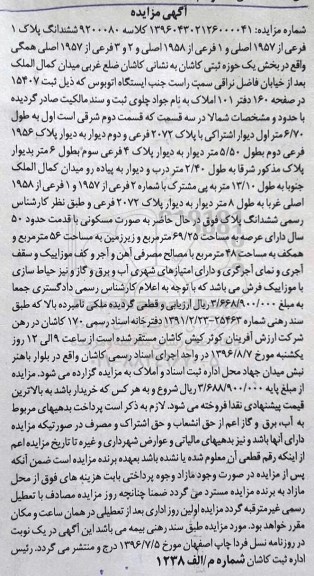 آگهی مزایده
شماره مزایده: ۱۳۹۶۰۴۳۰۲۱۲۶۰۰۰۰۴۱ کلاسه ۹۲۰۰۰۸۰ ششدانگ پلاک ۱
فرعی از ۱۹۵۷ اصلی و ۱ فرعی از ۱۹۵۸ اصلی و ۲ و ۳ فرعی از ۱۹۵۷ اصلی همگی
واقع در بخش یک حوزه ثبتی کاشان به نشانی کاشان ضلع غربی میدان کمال الملک
بعد از خیابان فاضل نراقی سمت راست جنب ایستگاه اتوبوس که ذیل ثبت ۱۵۴۰۷
در صفحه ۱۶۰ دفتر ۱۰۱ املاک به نام جواد چلوی ثبت و سند مالکیت صادر گردیده
با حدود و مشخصات شمالا در سه قسمت که قسمت دوم شرقی است اول به طول
۶/۷۰ متر اول دیوار اشتراکی با پلاک ۲۰۷۲ فرعی و دوم دیوار به دیوار پلاک ۱۹۵۶
فرعی دوم بطول ۵/۵۰ متر دیوار به دیوار پلاک ۴ فرعی سوم بطول ۶ متر بدیوار
پلاک مذکور شرقا به طول ۲/۴۰ متر درب و دیوار به پیاده رو میدان کمال الملک
جنوبا به طول ۱۳/۱۰ متر به پی مشترک با شماره ۲ فرعی از ۱۹۵۷ و ۱ فرعی از ۱۹۵۸
اصلی غربا به طول ۸ متر دیوار به دیوار پلاک ۲۰۷۲ فرعی و طبق نظر کارشناس
رسمی ششدانگ پلاک فوق در حال حاضر به صورت مسکونی با قدمت حدود ۵۰
سال دارای عرصه به مساحت ۶۹/۲۵ مترمربع و زیرزمین به مساحت ۵۶ مترمربع و
همکف به مساحت ۴۸ مترمربع با مصالح مصرفی آهن و آجر و کف موزاییک و سقف
آجری و نمای آجرگری و دارای امتیازهای شهری آب و برق و گاز و نیز حیاط سازی
با موزاییک فرش می باشد که با توجه به اعلام کارشناس رسمی دادگستری جمعا
به مبلغ ۳/۶۶۸/۹۰۰/۰۰۰ ریال ارزیابی و قطعی گردیده ملکی نامبرده بالا که طبق
سند رهنی شماره ۲۵۴۶۳-۱۳۹۱/۲/۲۳ دفترخانه اسناد رسمی ۱۷۰ کاشان در رهن
شرکت ارزش آفرینان کوثر کیش کاشان مستقر شده است از ساعت ۹ الی ۱۲ روز
یکشنبه مورخ ۱۳۹۶/۸/۷ در واحد اجرای اسناد رسمی کاشان واقع در بلوار باهنر
نبش میدان جهاد محل اداره ثبت اسناد و املاک به مزایده گزارده می شود. مزایده
از مبلغ پایه ۳/۶۶۸/۹۰۰/۰۰۰ ریال شروع و به هر کس که خریدار باشد به بالاترین
قیمت پیشنهادی نقدا فروخته می شود. لازم به ذکر است پرداخت بدهیهای مربوط
به آب، برق و گاز اعم از حق انشعاب و حق اشتراک و مصرف در صورتیکه مزایده
دارای آنها باشد و نیز بدهیهای مالیاتی و عوارض شهرداری و غیره تا تاریخ مزایده اعم
از اینکه رقم قطعی آن معلوم شده یا نشده باشد بعهده برنده مزایده است ضمن آنکه
پس از مزایده در صورت وجود مازاد وجوه پرداختی بابت هزینه های فوق از محل
مازاد به برنده مزایده مسترد می گردد ضمنا چنانچه روز مزایده مصادف با تعطیل
رسمی غیرمترقبه گردد مزایده اولین روز اداری بعد از تعطیلی در همان ساعت و مکان
مقرر خواهد بود. مورد مزایده طبق سند رهنی بیمه می باشد این آگهی در یک نوبت
در روزنامه نسل فردا چاپ اصفهان مورخ ۱۳۹۶/۷/۵ درج و منتشر می گردد. رئیس
اداره ثبت کاشان شماره م/الف ۱۲۳۸